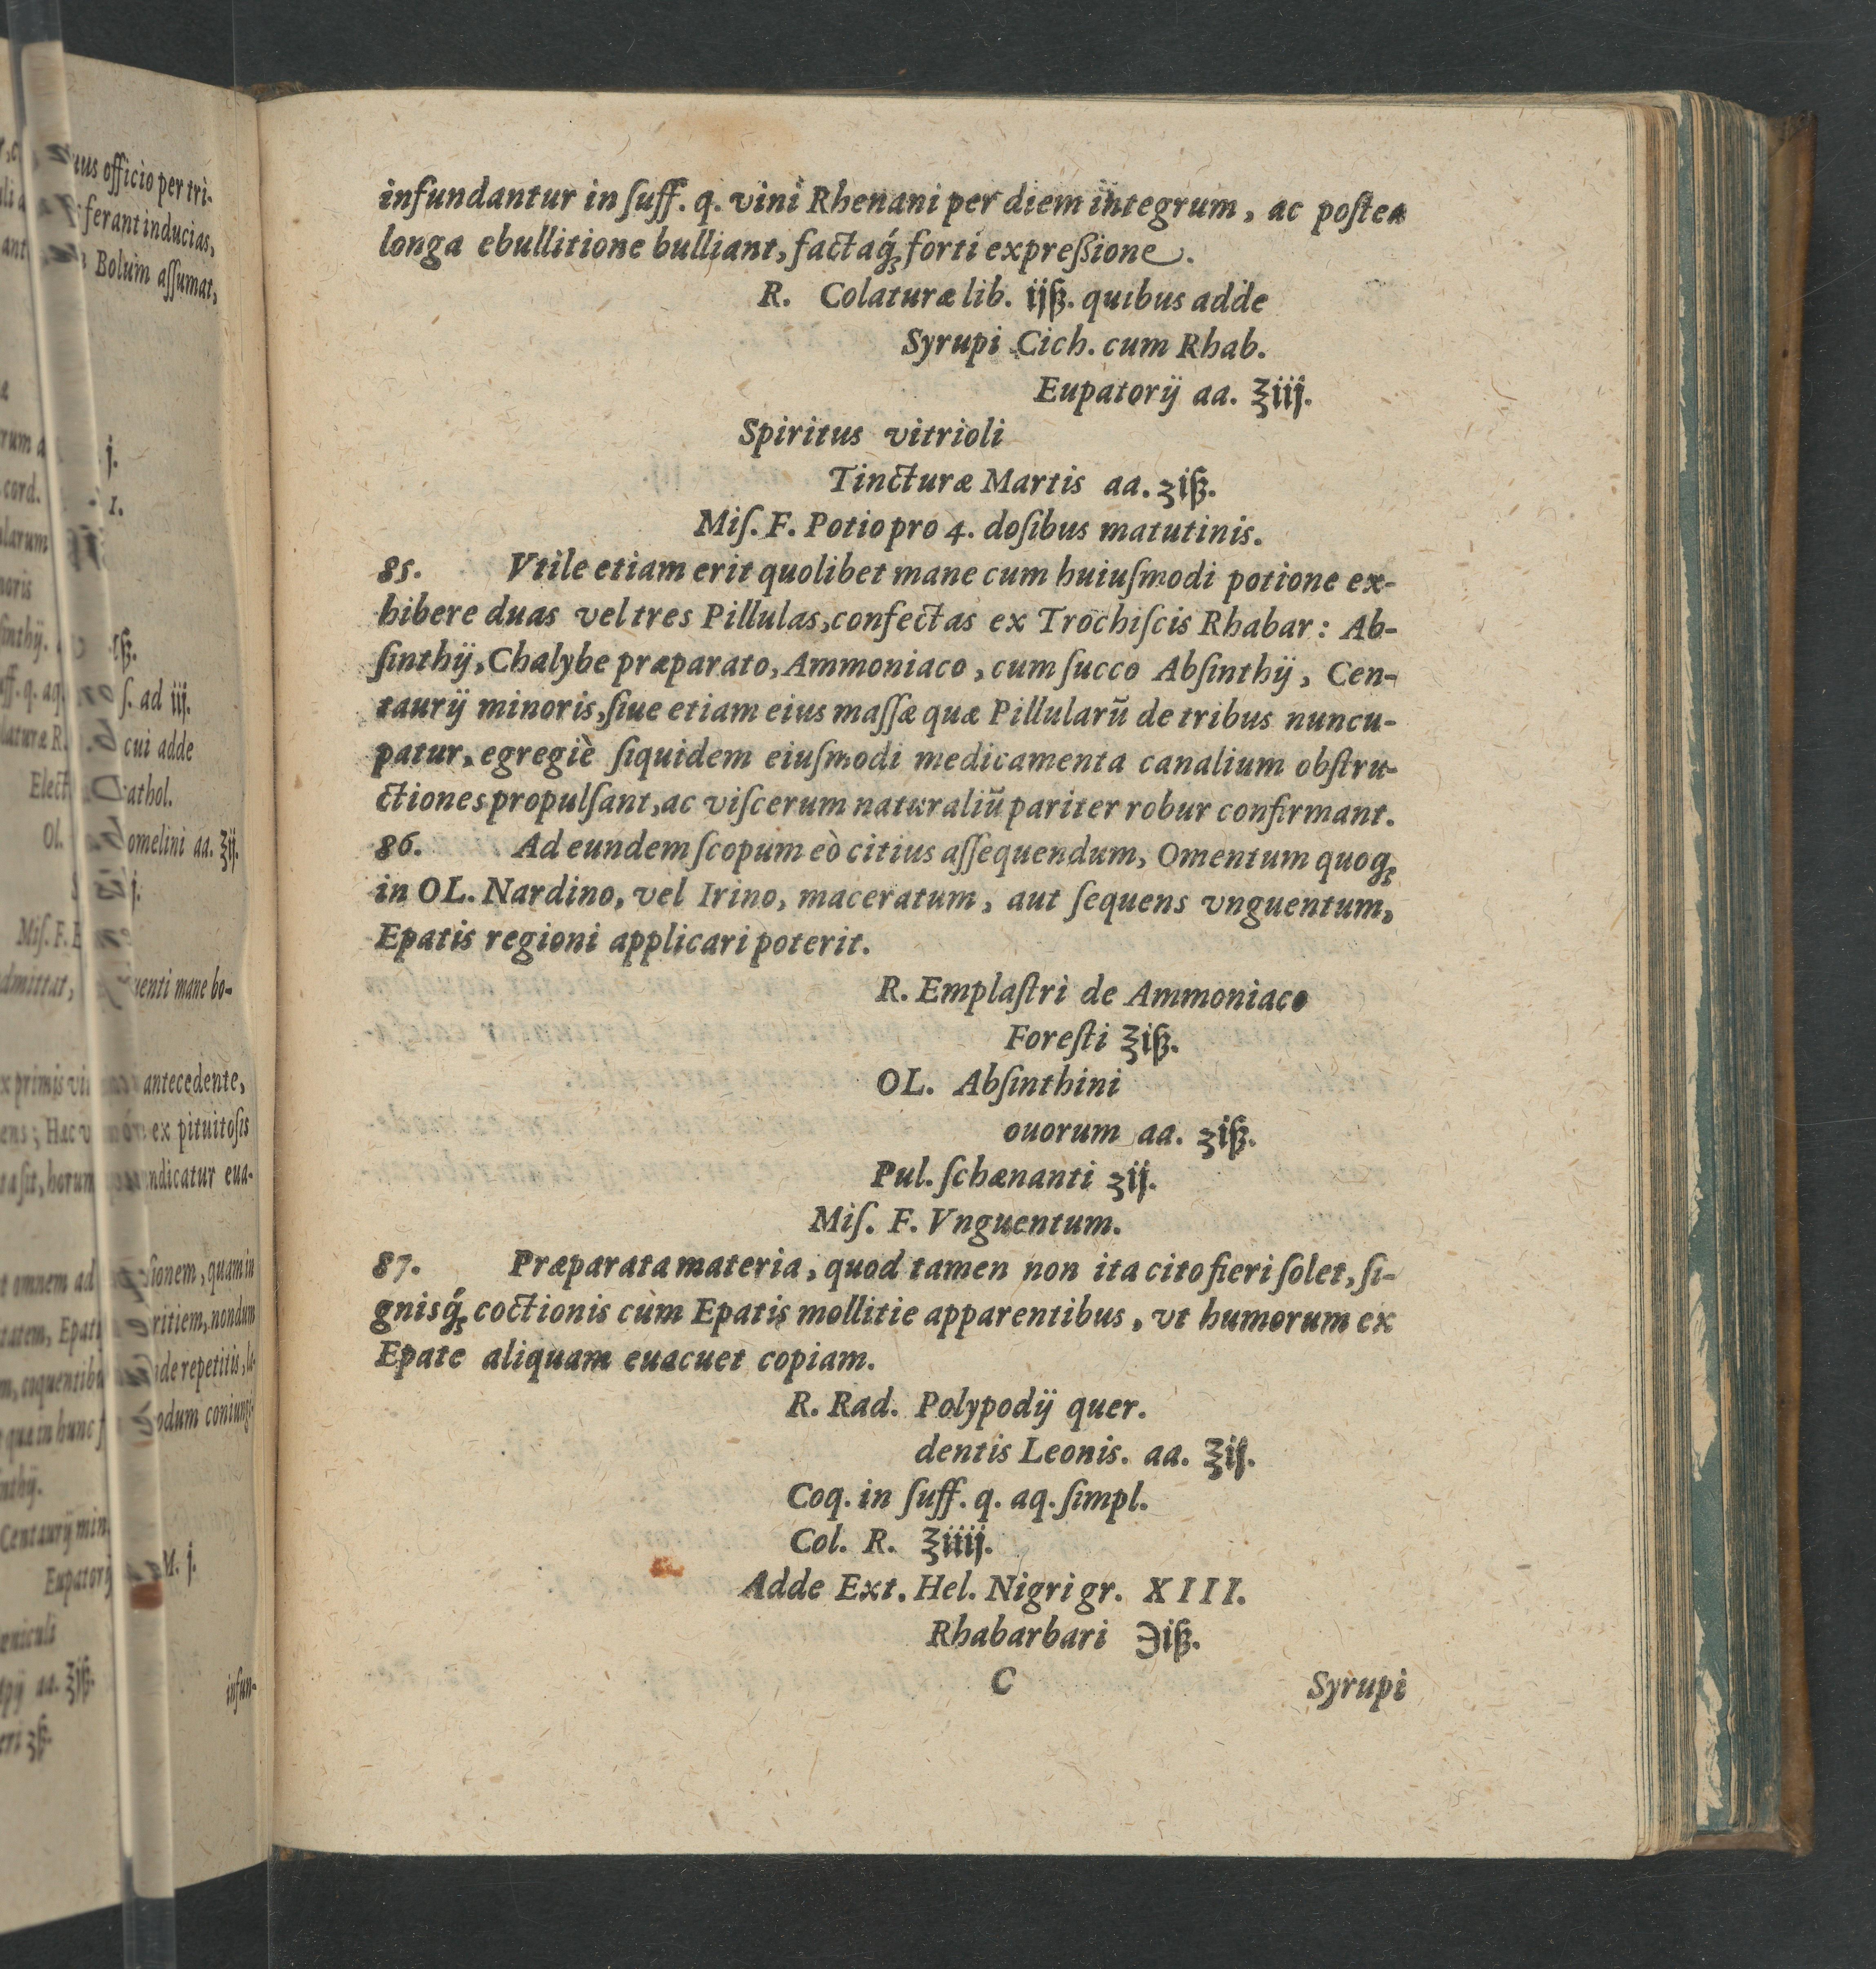 uus officio per tri-
ferant inducias,
Bolum aſſumat,
j.
1.
ſ. ad iij.
cui adde
athol.
omelini aa. ʒij.
j.
uenti mane bo-
antecedente,
ex pituitoſis
ndicatur eua-
ionem, quam in
ritiem, nondum
ide repetitis, la-
odum coniungi
M. j.
infun-
infundantur in ſuff. q. vini Rhenani per diem integrum, ac poſtea
longa ebullitione bulliant, factaq́; forti expreßione.
R. Colaturæ lib. ijß. quibus adde
Syrupi Cich. cum Rhab.
Eupatorij aa. ℥iij.
Spiritus vitrioli
Tincturæ Martis aa. ʒiß.
Miſ. F. Potio pro 4. doſibus matutinis.
85. Vtile etiam erit quolibet mane cum huiuſmodi potione ex-
hibere duas vel tres Pillulas, confectas ex Trochiſcis Rhabar: Ab-
ſinthij, Chalybe præparato, Ammoniaco, cum ſucco Abſinthij, Cen-
taurij minoris, ſiue etiam eius maſſæ quæ Pillularũ de tribus nuncu-
patur, egregiè ſiquidem eiuſmodi medicamenta canalium obſtru-
ctiones propulſant, ac viſcerum naturaliũ pariter robur confirmant.
86. Ad eundem ſcopum eò citius aſſequendum, Omentum quoq;
in OL. Nardino, vel Irino, maceratum, aut ſequens vnguentum,
Epatis regioni applicari poterit.
R. Emplaſtri de Ammoniaco
Foreſti ℥iß.
OL. Abſinthini
ouorum aa. ʒiß.
Pul. ſchænanti ʒij.
Miſ. F. Vnguentum.
87. Præparata materia, quod tamen non ita cito fieri ſolet, ſi-
gnisq́; coctionis cùm Epatis mollitie apparentibus, vt humorum ex
Epate aliquam euacuet copiam.
R. Rad. Polypodij quer.
dentis Leonis. aa. ℥iſ.
Coq. in ſuff. q. aq. ſimpl.
Col. R. ℥iiij.
Adde Ext. Hel. Nigri gr. XIII.
Rhabarbari ℈iß.
C Syrupi